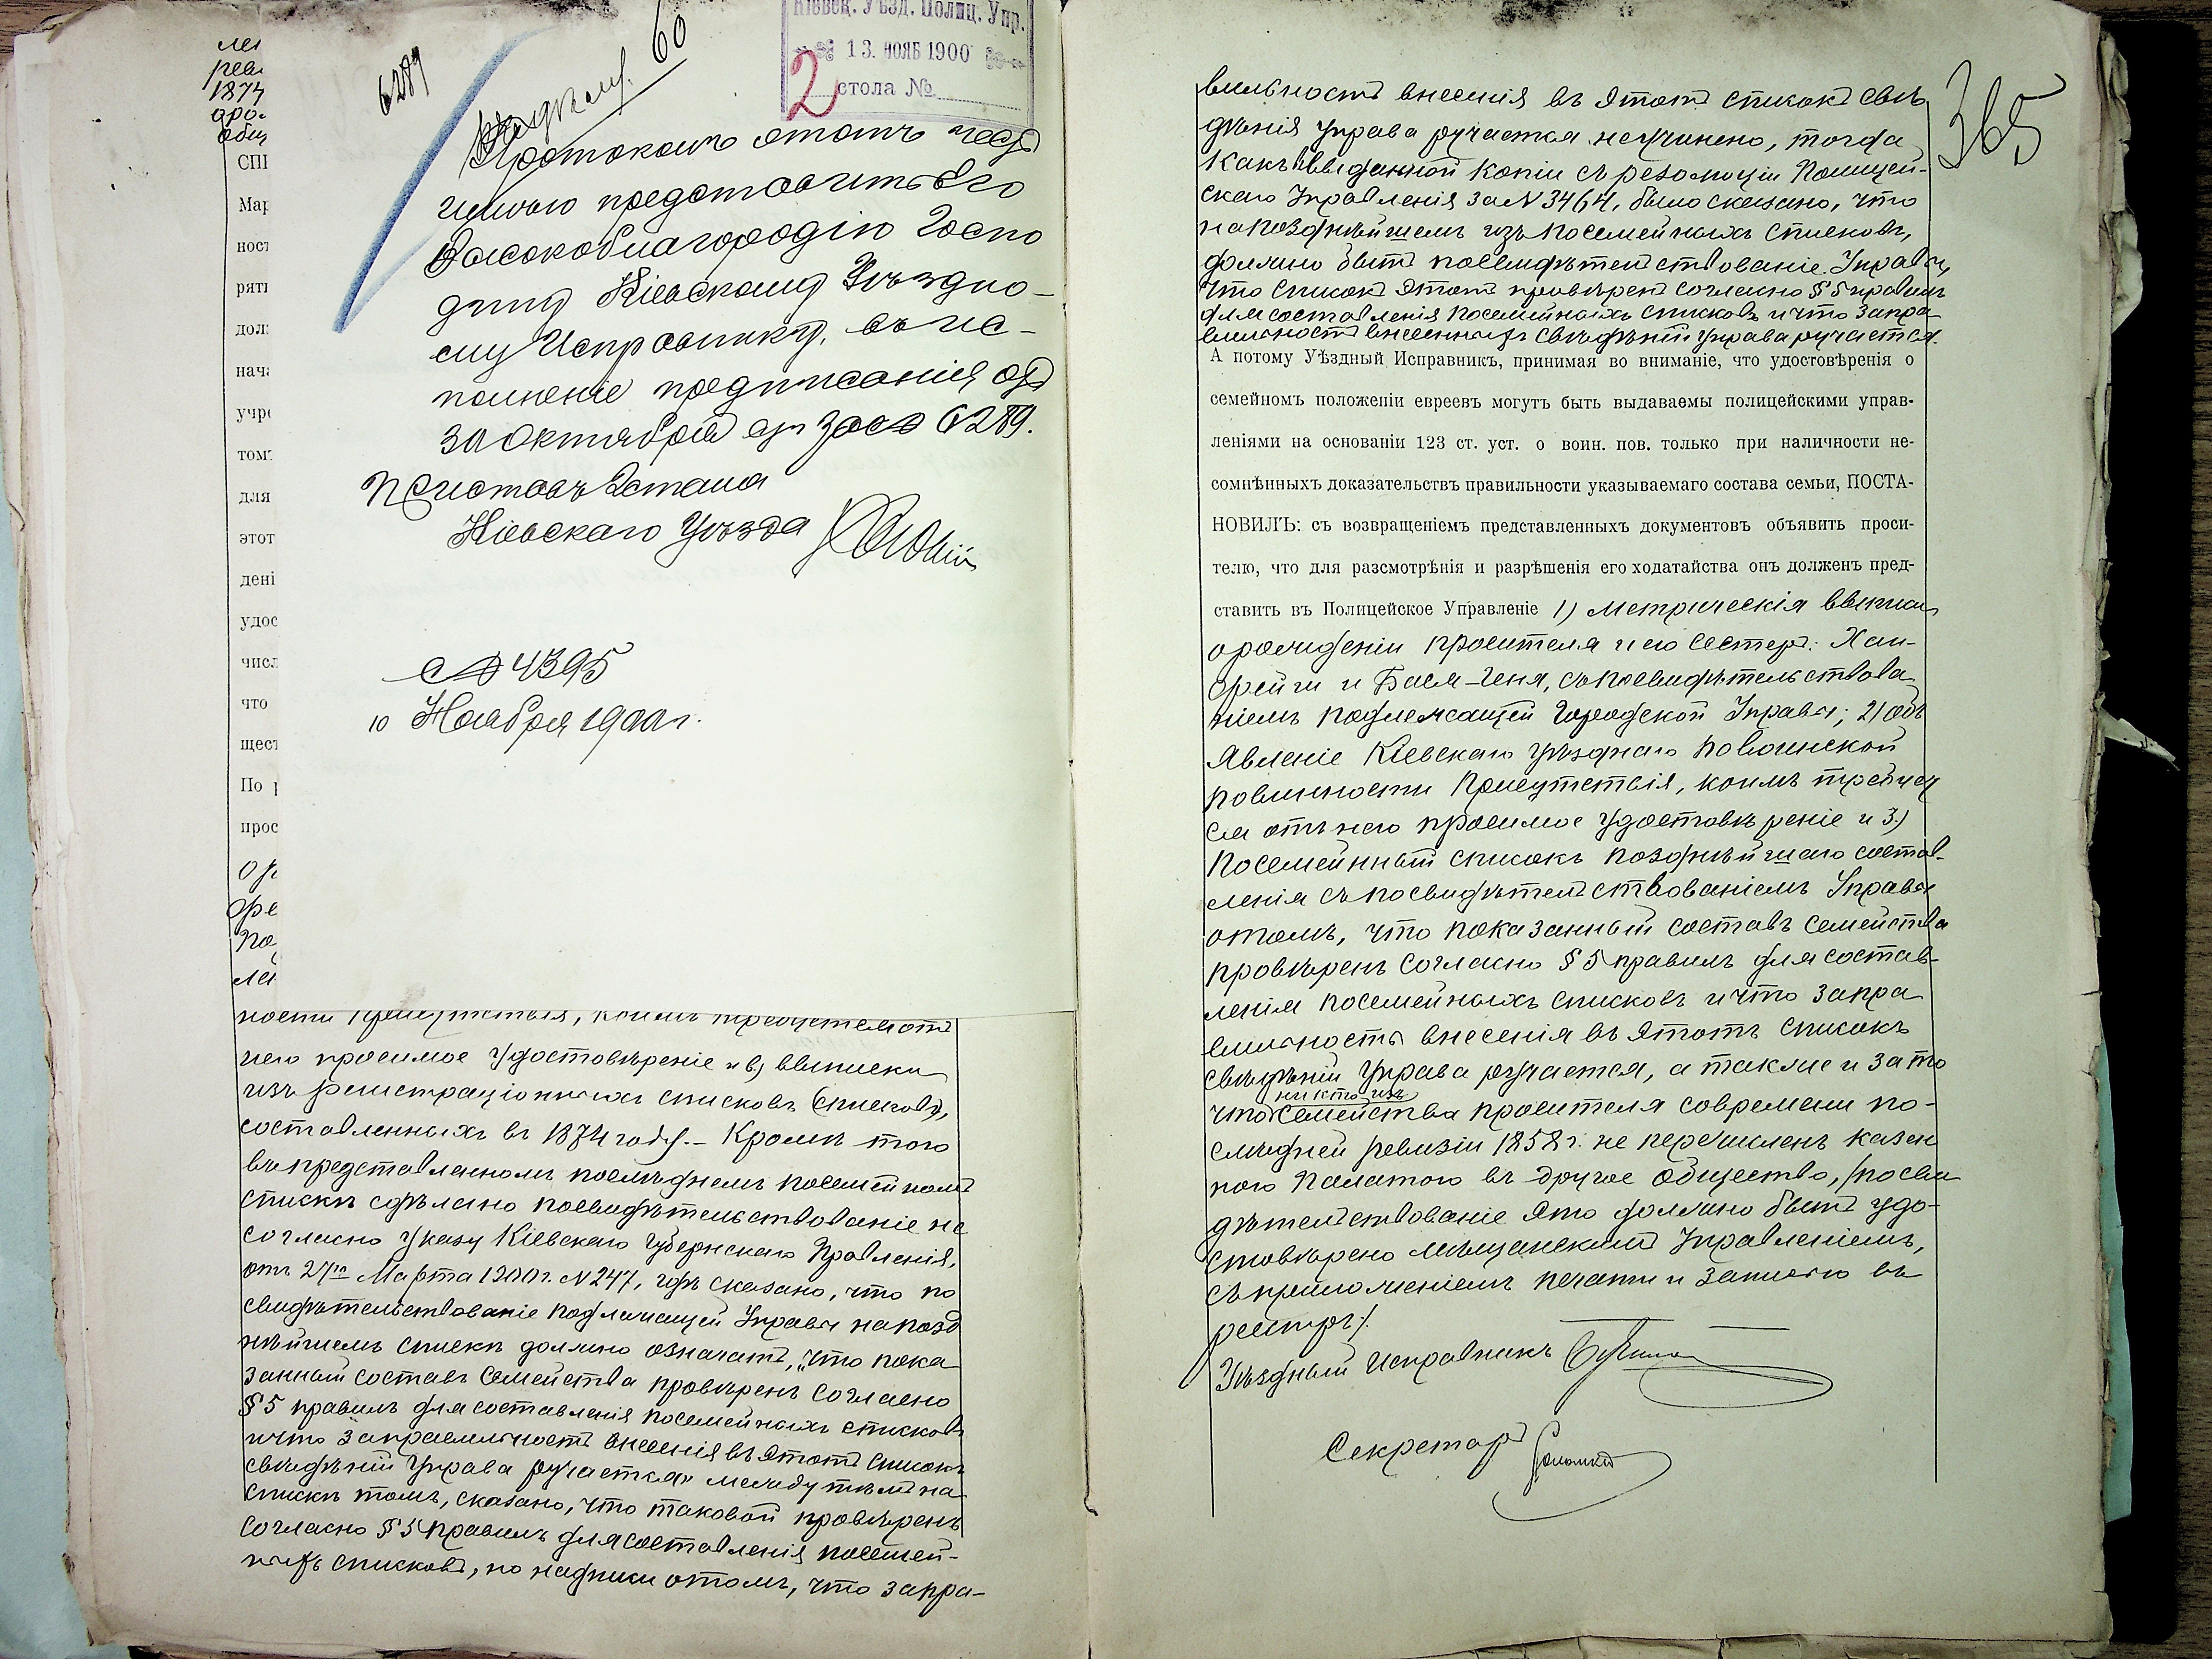 Кіевск. Уѣзд. Полиц. Упр.
13. НОЯБ 1900
2 стола №
6289
60
Протоколъ этотъ честь
имѣю представить Его
Высокоблагородію Госпо
дину Кіевскому Уѣздно-
му Исправнику, во ис-
полненіе предписанія отъ
30 Октября с. г. за № 6289.
Приставъ 2 стана
Кіевскаго Уѣзда
№ 4395
10 Ноября 1900 г.
1874
СПИ
Мар
ност
ряті
дол
нача
учре
том
для
этот
дені
удос
числ
что
щест
По
прос
ности Присутствія, коимъ требуется отъ
него просимое удостовѣреніе и в) выписки
изъ регистраціонныхъ списковъ (списковъ),
составленныхъ въ 1874 году. - Кромѣ того
въ представленномъ послѣднемъ посемейномъ
спискѣ сдѣлано посвидѣтельствованіе не
согласно указу Кіевскаго Губернскаго Правленія,
отъ 27го Марта 1900 г. № 247, гдѣ сказано, что по
свидѣтельствованіе подлежащей Управы на позд
нѣйшемъ спискѣ должно означать, „что пока
занный составъ семейства провѣренъ согласно
§ 5 правилъ для составленія посемейныхъ списковъ
и что за правильность внесенія въ этотъ списокъ
свѣдѣній Управа ручается" между тѣмъ на
спискѣ томъ, сказано, что таковой провѣренъ
согласно § 5 правилъ для составленія посемей-
ныхъ списковъ, но надписи о томъ, что за пра-
365
вильность внесенія въ этотъ списокъ свѣ
дѣнія Управа ручается не учинено, тогда
какъ въ выданной копіи съ резолюціи Полицей-
скаго Управленія за № 3464, было сказано, что
на позднѣйшемъ изъ посемейныхъ списковъ,
должно быть посвидѣтельствованіе Управы,
что списокъ этотъ провѣренъ согласно § 5 правилъ
для составленія посемейныхъ списковъ и что за пра
вильность внесенныхъ свѣдѣній Управа ручается.
А потому Уѣздный Исправникъ, принимая во вниманіе, что удостовѣренія о
семейномъ положеніи евреевъ могутъ быть выдаваемы полицейскими управ-
леніями на основаніи 123 ст. уст. о воин. пов. только при наличности не-
сомнѣнныхъ доказательствъ правильности указываемаго состава семьи, ПОСТА-
НОВИЛЪ: съ возвращеніемъ представленныхъ документовъ объявить проси-
телю, что для разсмотрѣнія и разрѣшенія его ходатайства онъ долженъ пред-
ставить въ Полицейское Управленіе 1) метрическія выписи
о рожденіи просителя и его сестеръ: Хаи-
Фрейги и Баси-Гени, съ посвидѣтельствова
ніемъ подлежащей Городской Управы; 2) объ
явленіе Кіевскаго Уѣзднаго по воинской
повинности Присутствія, коимъ требует
ся отъ него просимое удостовѣреніе и 3)
посемейный списокъ позднѣйшаго состав-
ленія съ посвидѣтельствованіемъ Управы
о томъ, что показанный составъ семейства
провѣренъ согласно § 5 правилъ для состав-
ленія посемейныхъ списковъ и что за пра
вильность внесенія въ этотъ списокъ
свѣдѣній Управа ручается, а также и за то
никто изъ
что семейства просителя со времени по-
слѣдней ревизіи 1858 г. не перечисленъ казен
ною Палатою въ другое общество, /посви
дѣтельствованіе это должно быть удо-
стовѣрено мѣщанскимъ Управленіемъ,
съ приложеніемъ печати и записью въ
реестръ/.
Уѣздный Исправникъ
Секретарь